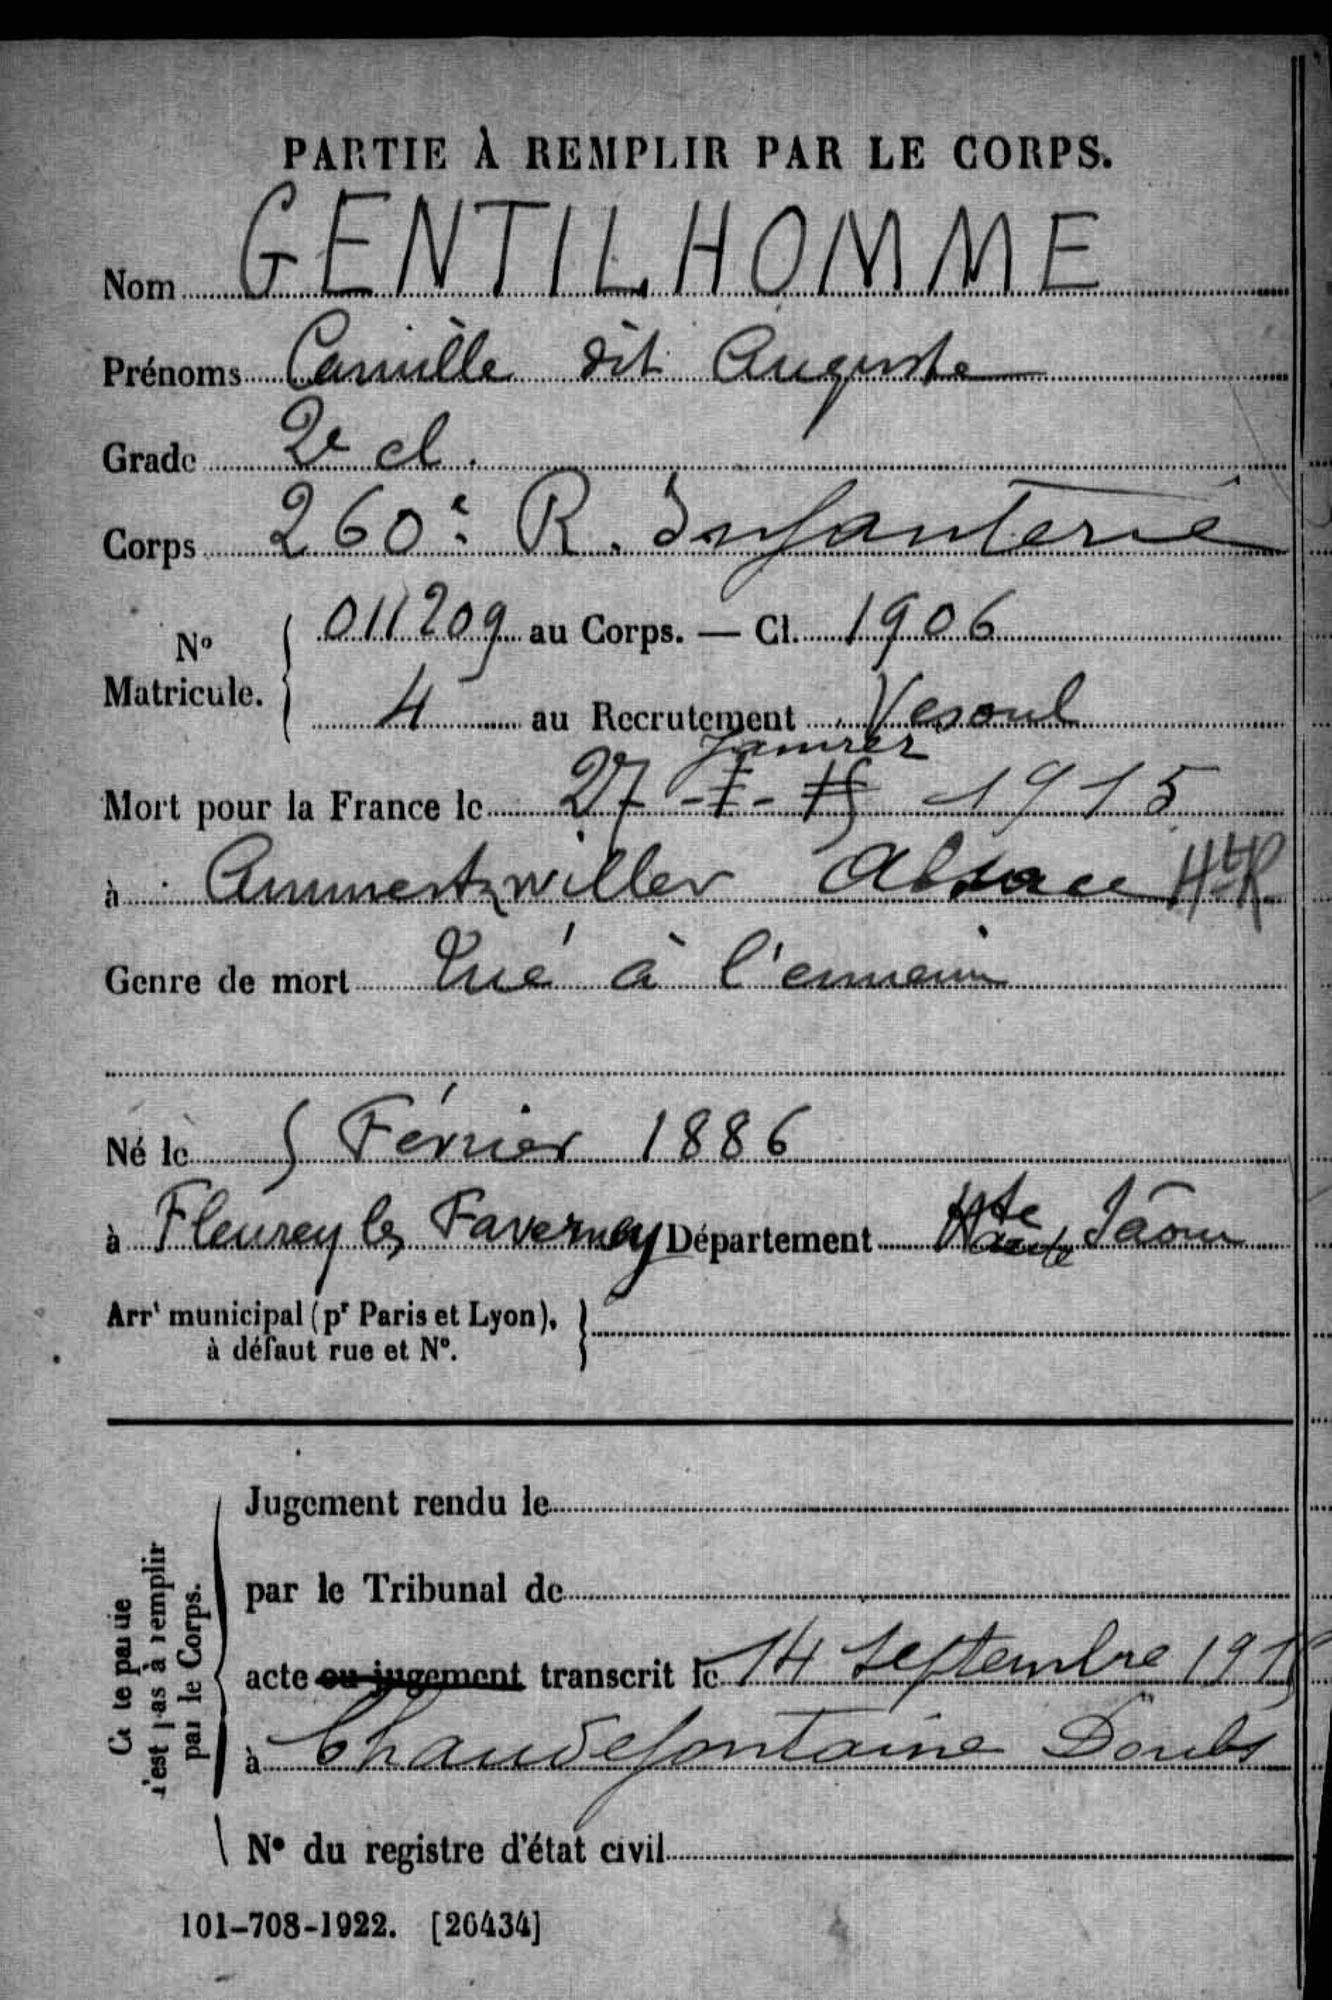 PARTIE À REMPLIR PAR LE CORPS.
Nom GENTILHOMME
Prénoms Camille dit Auguste
Grade 2e cl.
Corps 260e R. Infanterie
No Matricule. 011209 au Corps. — Cl. 1906
4 au Recrutement Vesoul
Janvier
Mort pour la France le 27 -I- 15 1915
à Ammertzwiller Alsace Ht R
Genre de mort Tué à l'ennemi
Né le 5 Février 1886
à Fleurey les Faverney Département Hte Saône
Arrt municipal (pr Paris et Lyon),
à défaut rue et No.
Jugement rendu le
par le Tribunal de
acte ou jugement transcrit le 14 Septembre 191
à Chaudefontaine Doubs
No du registre d'état civil
Ce te partie
n'est pas à remplir
par le Corps.
101-708-1922. [26434]